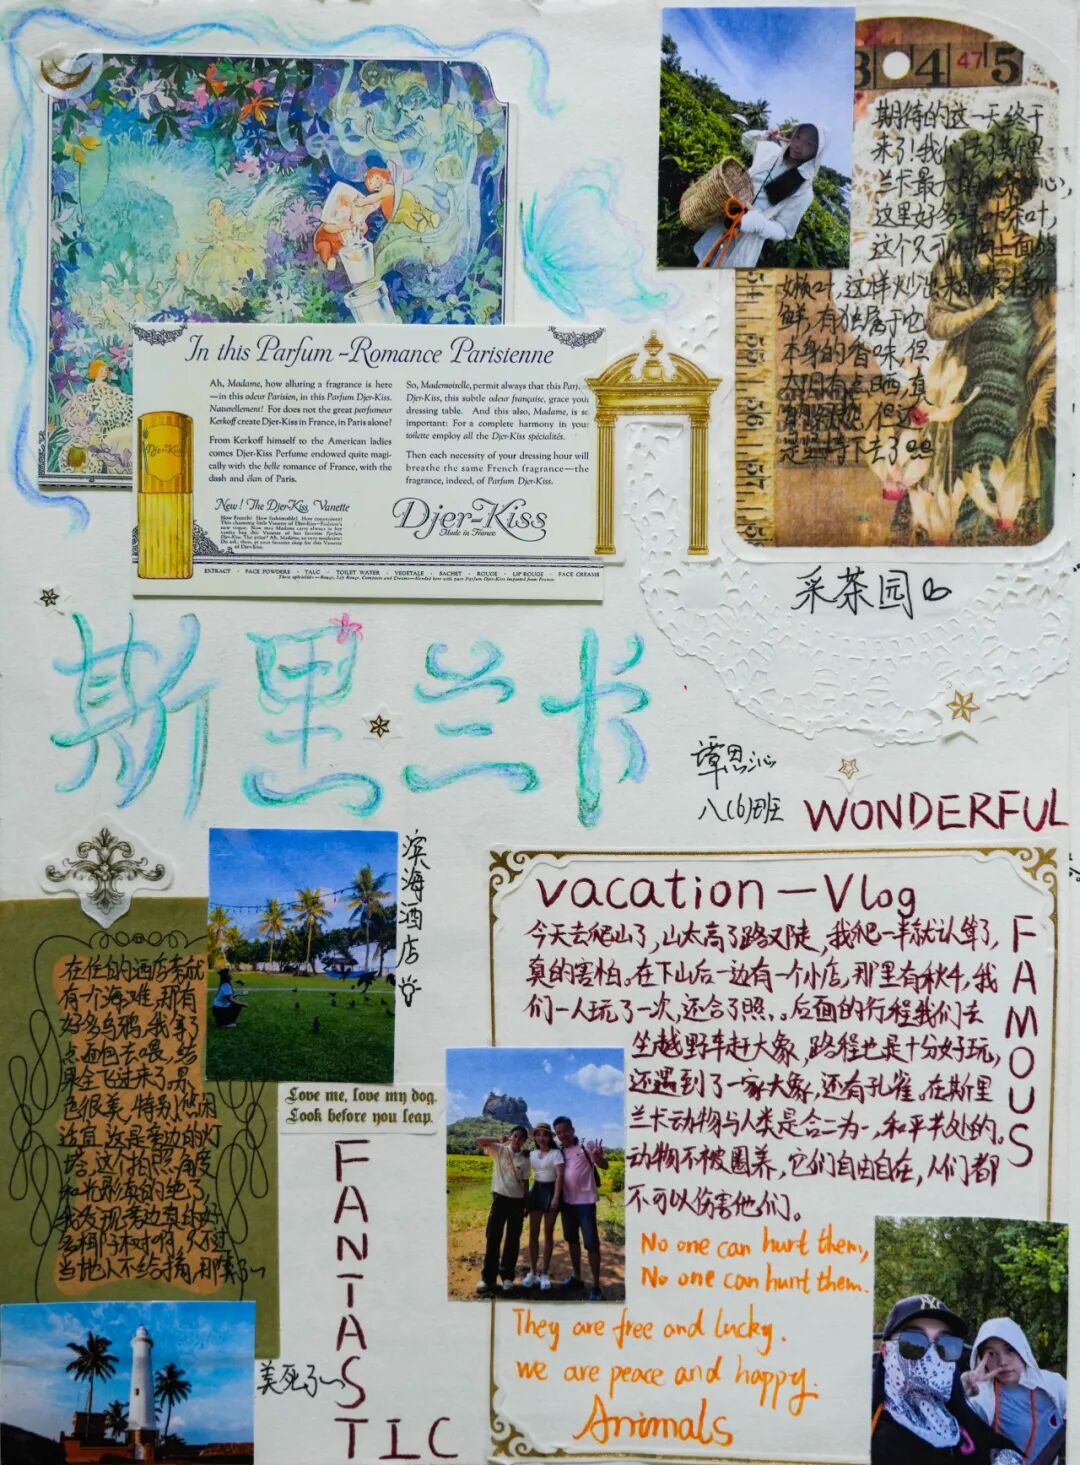 3 4 47 5
期待的这一天终于
来了!我们去了斯里
兰卡最大的茶心,
这里好多绿叶茶叶,
这个只可上面的
嫩叶,这样炒出来的茶
鲜,有独属于它
本身的香味,但
太阳有点晒,真
但还
是坚持下去了
采茶园
54
55
56
57
In this Parfum - Romance Parisienne
Ah, Madame, how alluring a fragrance is here
—in this odeur Parisien, in this Parfum Djer-Kiss.
Naturellement! For does not the great parfumeur
Kerkoff create Djer-Kiss in France, in Paris alone?
From Kerkoff himself to the American ladies
comes Djer-Kiss Perfume endowed quite magi-
cally with the belle romance of France, with the
dash and élan of Paris.
So, Mademoiselle, permit always that this Parf.
Djer-Kiss, this subtle odeur française, grace your
dressing table. And this also, Madame, is so
important: For a complete harmony in your
toilette employ all the Djer-Kiss spécialités.
Then each necessity of your dressing hour will
breathe the same French fragrance—the
fragrance, indeed, of Parfum Djer-Kiss.
New! The Djer-Kiss Vanette
Djer-Kiss
Made in France
EXTRACT · FACE POWDERS · TALC · TOILET WATER · VEGETALE · SACHET · ROUGE · LIP ROUGE · FACE CREAMS
Djer-Kiss
斯里兰卡
谭思沁
八(6)班
WONDERFUL
滨海酒店
在住的酒店旁就
有个海滩,那有
好多乌鸦,我拿了
点面包去喂,结
果全飞过来了.景
色很美,特别悠闲
适宜.这是旁边的灯
塔,这个拍照角度
和光影真的绝了,
我发现旁边真的好
多椰子树啊,只不过
当地人不给摘,那算了~
美死了~
Love me, love my dog.
Look before you leap.
FANTASTIC
vacation — Vlog
今天去爬山了,山太高了路又陡,我爬一半就认算了,
真的害怕。在下山后一边有一个小店,那里有秋千,我
们一人玩了一次,还合了照,。后面的行程我们去
坐越野车赶大象,路程也是十分好玩,
还遇到了一家大象,还有孔雀。在斯里
兰卡动物与人类是合二为一,和平共处的。
动物不被圈养,它们自由自在,人们都
不可以伤害他们。
FAMOUS
No one can hurt them,
No one can hurt them.
They are free and lucky.
we are peace and happy.
Animals
NY